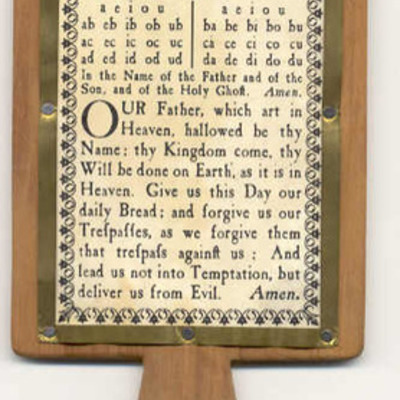 a e i o u a e i o u
ab eb ib ob ub ba be bi bo bu
ac ec ic oc uc ca ce ci co cu
ad ed id od ud da de di do du
In the Name of the Father and of the
Son, and of the Holy Ghoſt. Amen.
OUR Father, which art in
Heaven, hallowed be thy
Name; thy Kingdom come, thy
Will be done on Earth, as it is in
Heaven. Give us this Day our
daily Bread; and forgive us our
Treſpaſſes, as we forgive them
that treſpaſs againſt us; And
lead us not into Temptation, but
deliver us from Evil. Amen.